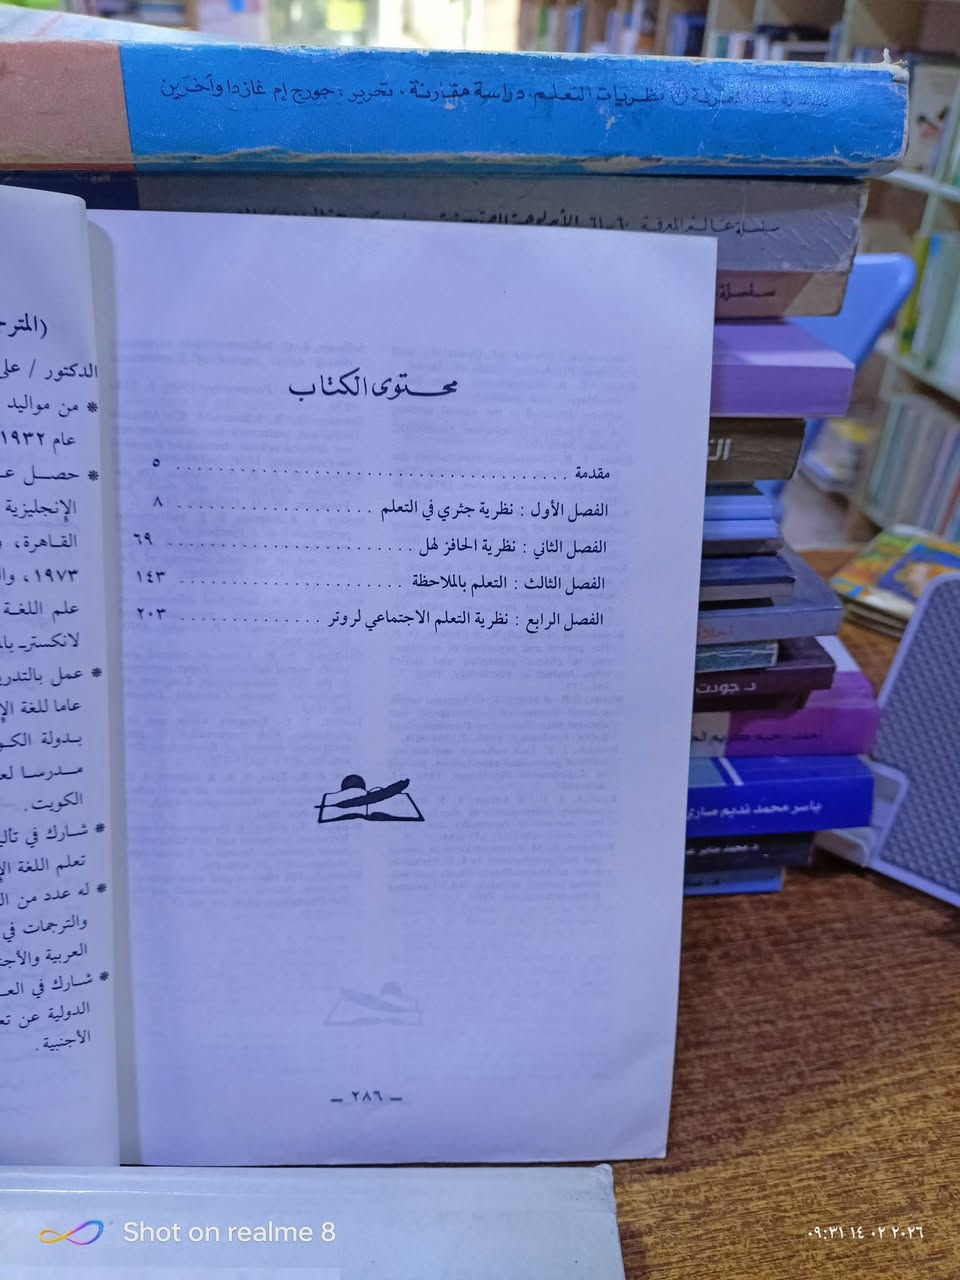 نظريات التعلم، دراسة مقارنة، تحرير: جورج إم غازدا وآخرين
سلسلة عالم المعرفة
سلسلة
محتوى الكتاب
مقدمة ........................................ ٥
الفصل الأول : نظرية جثري في التعلم .................... ٨
الفصل الثاني : نظرية الحافز لهل ........................ ٦٩
الفصل الثالث : التعلم بالملاحظة ........................ ١٤٣
الفصل الرابع : نظرية التعلم الاجتماعي لروتر .............. ٢٠٣
– ٢٨٦ –
(المترج
الدكتور / على
* من مواليد
عام ١٩٣٢
* حصل عـ
الإنجليزية
القاهرة، و
١٩٧٣، وال
علم اللغة
لانكستر ـ بالم
* عمل بالتدري
عاما للغة الإ
بدولة الكو
مدرسا لع
الكويت .
* شارك في تألي
تعلم اللغة الإ
* له عدد من ال
والترجمات في
العربية والأجن
* شارك في العـ
الدولية عن تع
الأجنبية .
د. جودت
احمد رحيم كريم
ياسر محمد نديم صاري
د. محمد صابر
Shot on realme 8
٠٩:٣١ ١٤ ٠٢ ٢٠٢٦